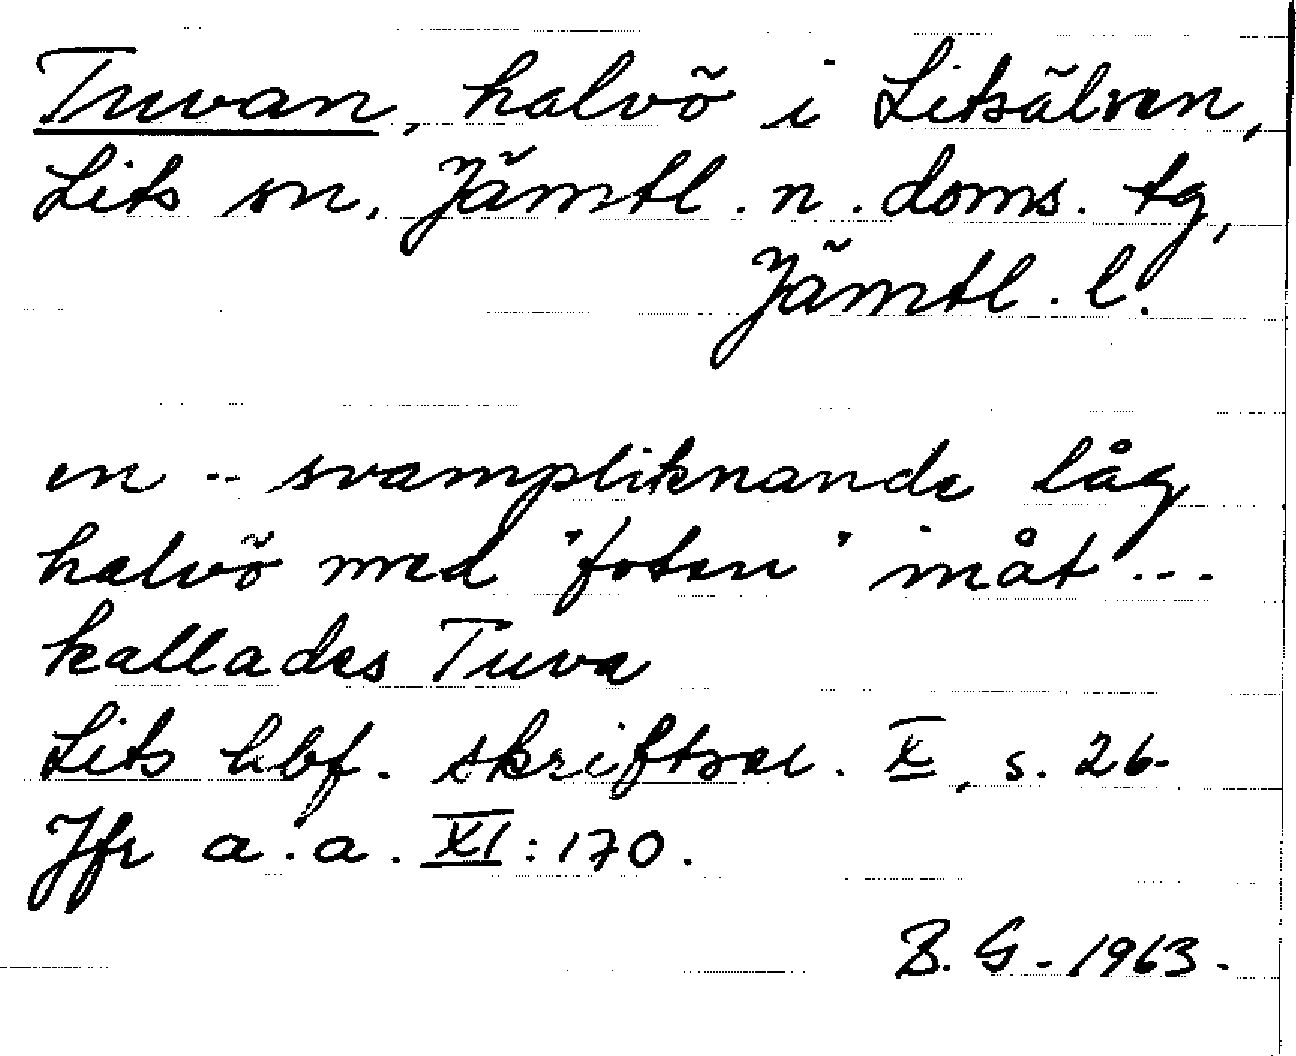 Tuvan, halvö i Litsälven,
Lits sn. Jämtl. n. doms. tg,
Jämtl. l.
en -- svampliknande låg
halvö med "foten" inåt ...
kallades Tuva
Lits hbf. skriftser. X, s. 26.
Jfr a.a. XI:170.
B. G. 1963.